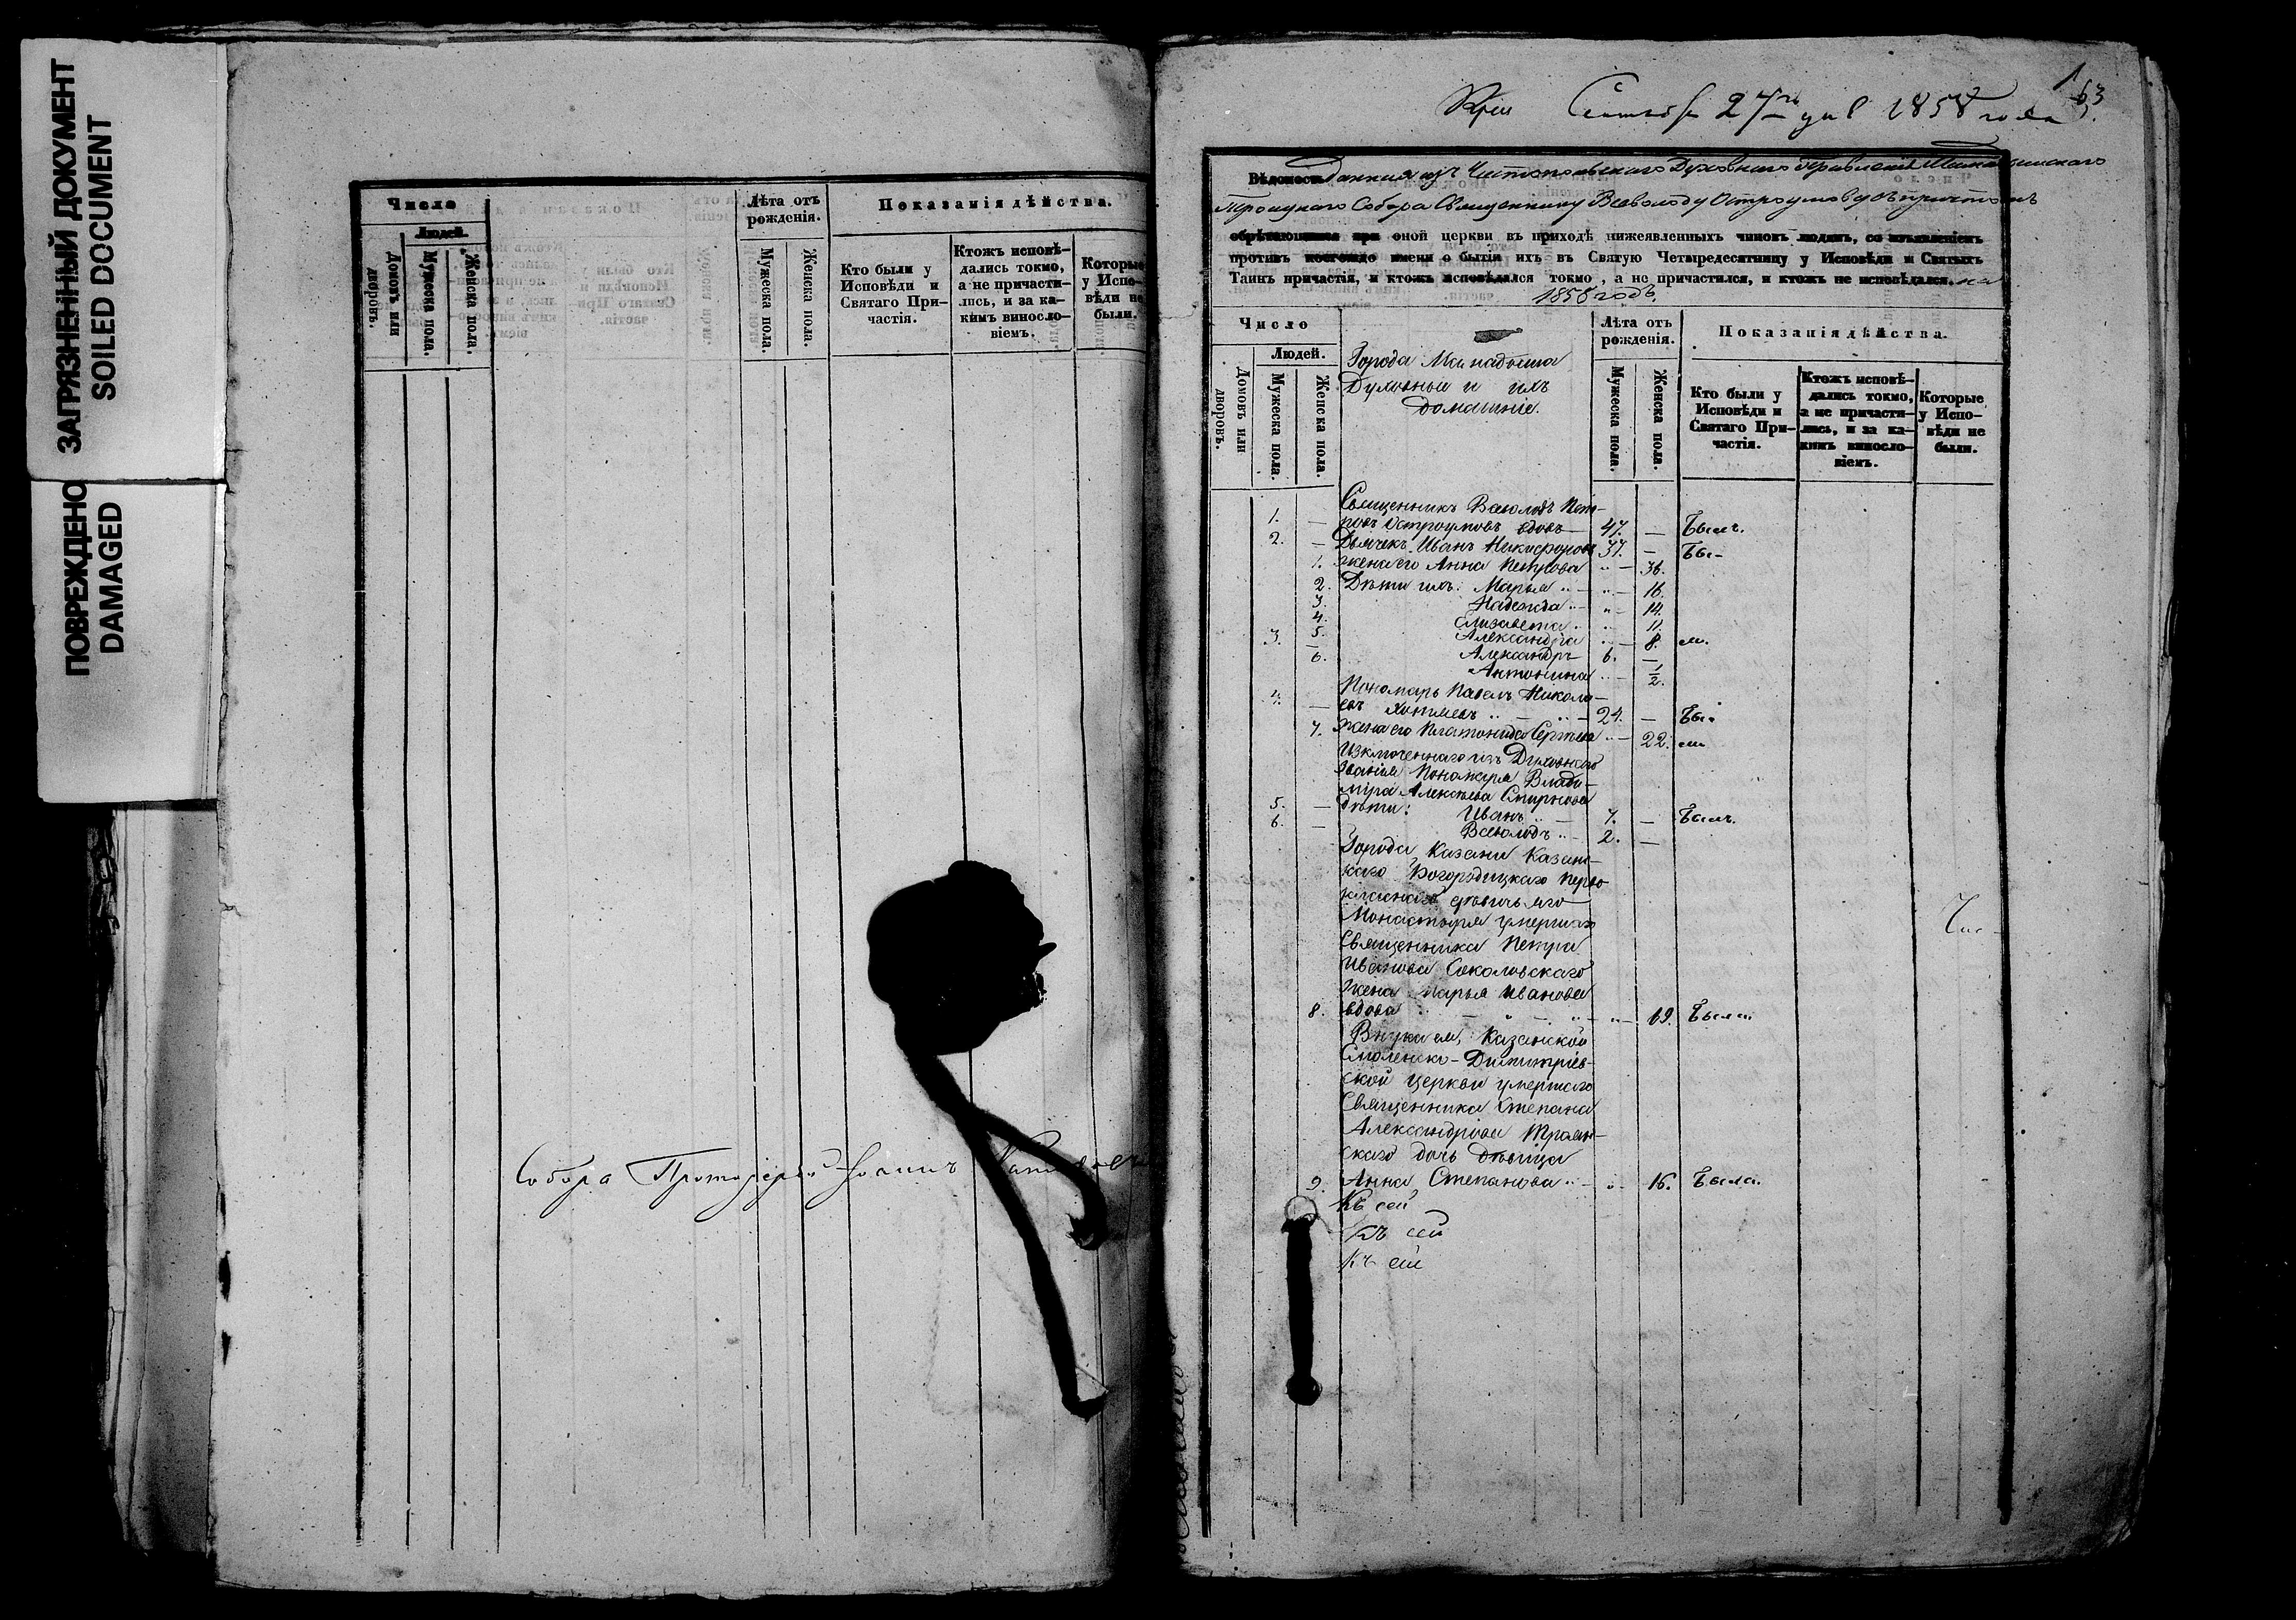 ЗАГРЯЗНЕННЫЙ ДОКУМЕНТ
SOILED DOCUMENT
ПОВРЕЖДЕНО
DAMAGED
Число
Людей.
Домовъ или дворовъ.
Мужеска пола.
Женска пола.
Лѣта отъ рожденія.
Мужеска пола.
Женска пола.
Показанія дѣйства.
Кто были у Исповѣди и Святаго При-
частія.
Ктожъ исповѣ-
дались токмо,
а не причасти-
лись, и за ка-
кимъ виносло-
віемъ.
Которые
у Испо-
вѣди не
были.
Собора Протоіерей Іоаннъ
Сентября 27го дня 1858 года
163
Вѣдомость данная изъ Чистопольскаго Духовнаго Правленія Мамадышскаго
Троицкаго Собора Священнику Всеволоду Остроумову съ причтомъ
обрѣтающимся при оной церкви въ приходѣ нижеявленныхъ чиновъ людямъ, со изъявленіемъ
противъ коегождо имени о бытіи ихъ въ Святую Четыредесятницу у Исповѣди и Святыхъ
Таинъ причастія, и ктожъ исповѣдался токмо, а не причастился, и ктожъ не исповѣдался. на
1858 годъ.
Число
Людей.
Домовъ или дворовъ.
Мужеска пола.
Женска пола.
Города Мамадыша
Духовныи и ихъ
домашніе.
Лѣта отъ рожденія.
Мужеска пола.
Женска пола.
Показанія дѣйства.
Кто были у
Исповѣди и
Святаго При-
частія.
Ктожъ исповѣ-
дались токмо,
а не причасти-
лись, и за ка-
кимъ виносло-
віемъ.
Которые
у Испо-
вѣди не
были.
Священникъ Всеволодъ Пет-
1. — ровъ Остроумовъ вдовъ — 47. — Былъ.
2. — Дьячекъ Иванъ Никифоровъ 37. — Бы-
1. жена его Анна Петрова " — 36.
2. Дѣти ихъ: Марья " — 16.
3. Надежда " — 14.
4. Елизавета " 11.
5. Александра " — 8. ли.
3. — Александръ 6. —
6. Антонина " — 1/2.
Пономарь Павелъ Никола-
4. — евъ — 24. — Бы-
7. жена его Платонида Сергѣева " — 22. ли
Изключеннаго изъ Духовнаго
званія Пономаря Влади-
міра Алексѣева Смирнова
5. — дѣти: Иванъ — 7. — Былъ.
6. — Всеволодъ — 2. —
Города Казани Казанс-
каго Богородицкаго перво
класнаго дѣвичьяго
Монастыря умершаго
Священника Петра
Иванова Соколовскаго
жена Марья Иванова
8. вдова — " — 69. Была.
Внука ея, Казанской
Смоленско-Димитріев-
ской церкви умершаго
Священника Степана
Александрова Траян-
скаго дочь дѣвица
9. Анна Степанова " — " 16. Была.
Къ сей
Къ сей
Къ сей